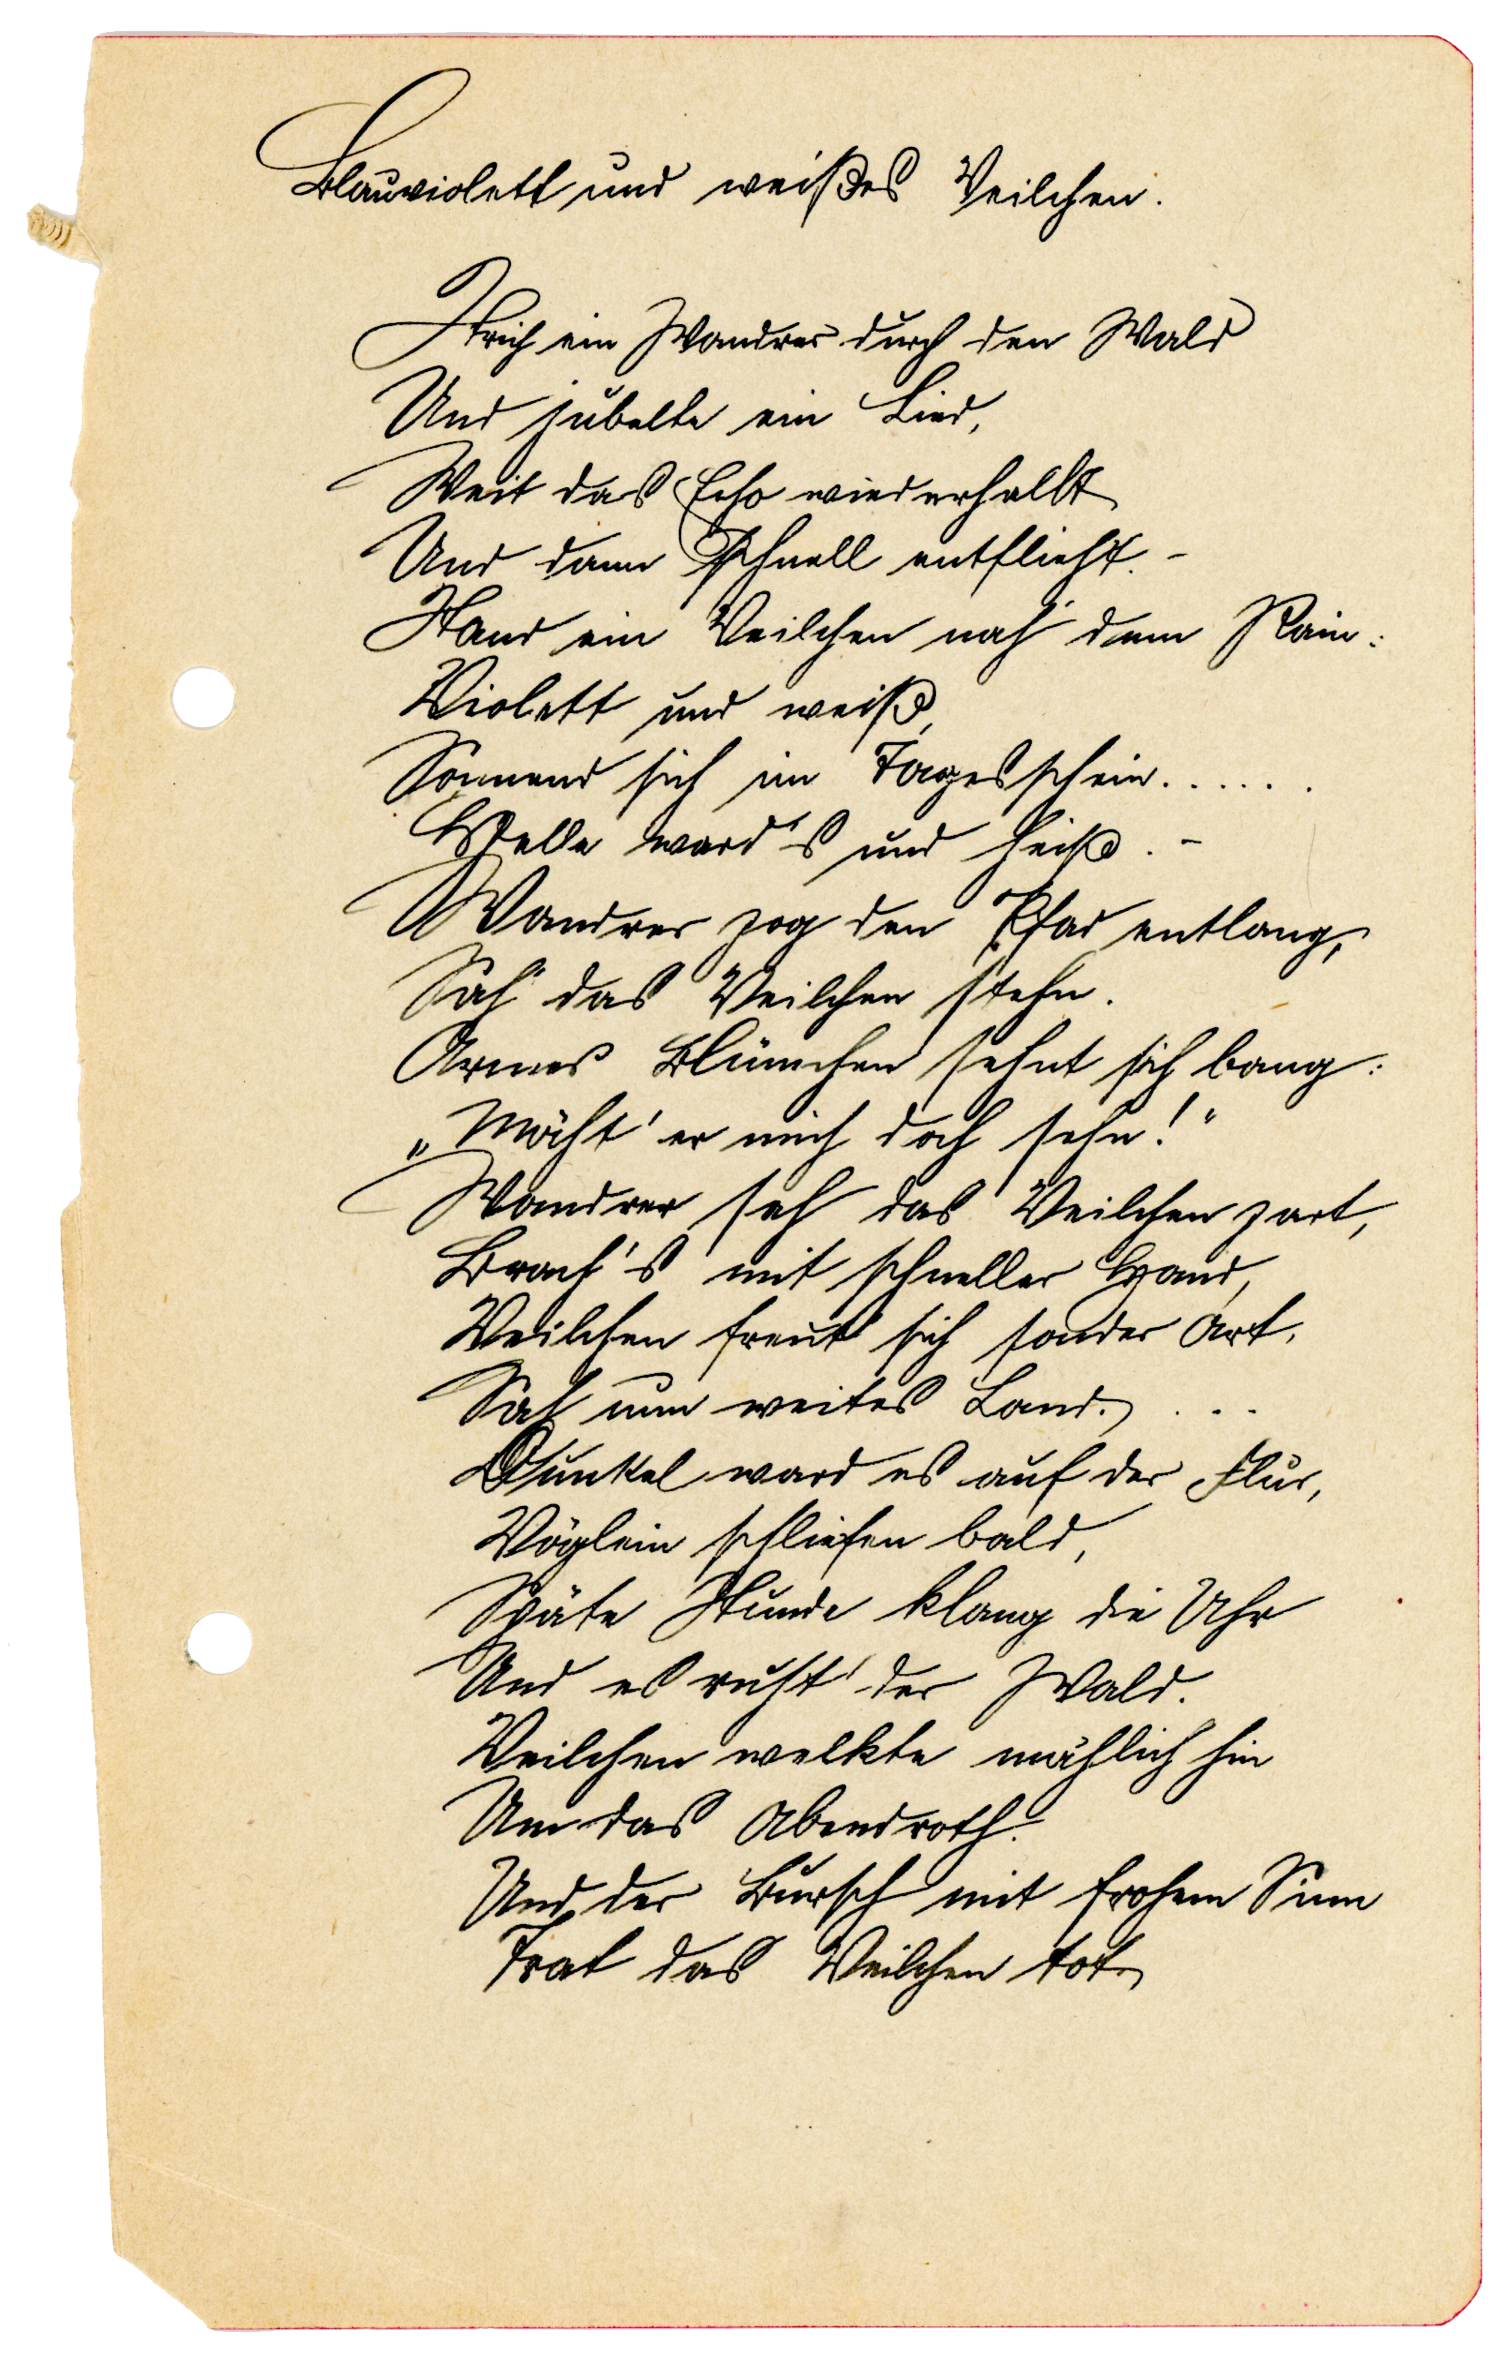 Blauviolett und weißes Veilchen.
Strich ein Wandrer durch den Wald
Und jubelte ein Lied,
Weit das Echo wiederhallt
Und dann schnell entflieht. -
Stand ein Veilchen nah' dem Rain:
Violett und weiß,
Sonnend sich im Tagesschein......
Helle ward's und heiß. -
Wandrer zog den Pfad entlang,
Sah das Veilchen stehn.
Armes Blümchen sehnt sich bang:
„Möcht' er mich doch sehn!“
Wandrer sah das Veilchen zart,
Brach's mit schneller Hand,
Veilchen freut sich sonder Art,
Sah nun weites Land. ...
Dunkel ward es auf der Flur,
Vöglein schliefen bald,
Späte Stunde klang die Uhr
Und es ruht' der Wald.
Veilchen welkte mählich hin
Um das Abendroth.
Und der Bursch mit frohem Sinn
Trat das Veilchen tot.